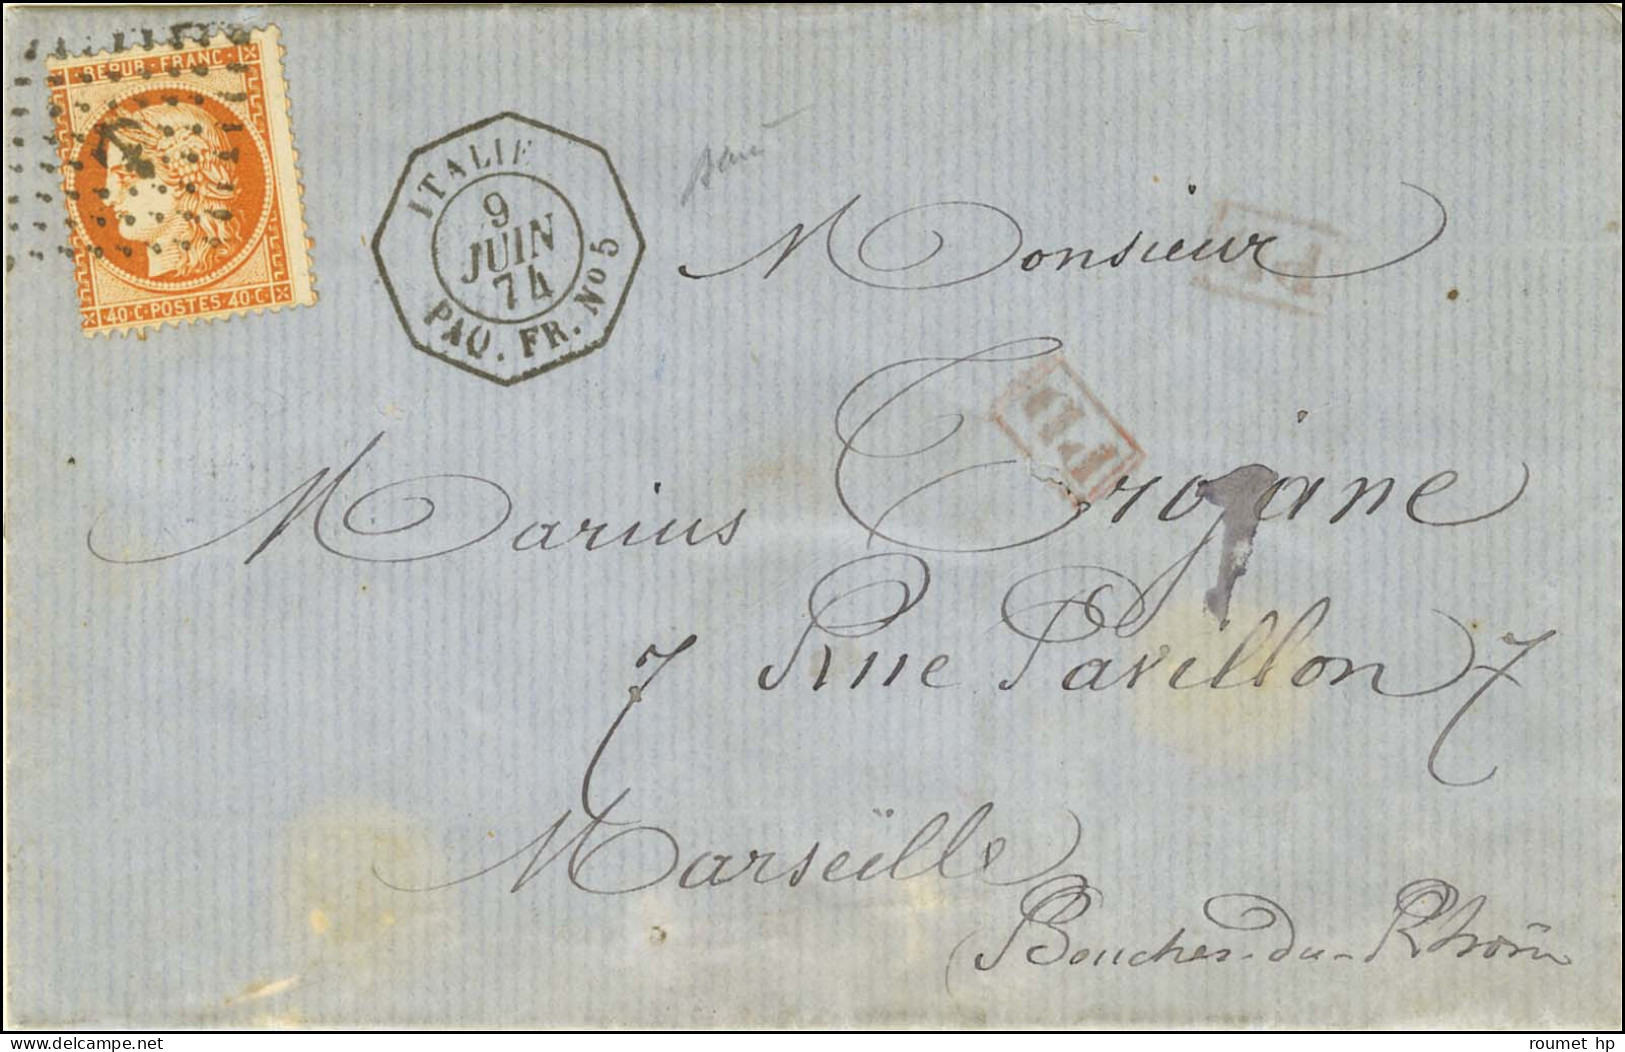 REPUB · FRANC ·
40·C·POSTES·40·C
ITALIE
9
JUIN
74
PAQ. FR. No 5
Monsieur
PD
Marius Trojane
7 Rue Pavillon 7
Marseïlle
Bouches-du-Rhône
roumet hp